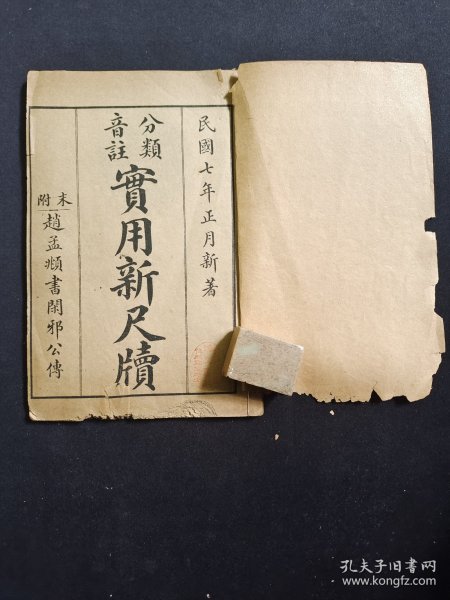 民國七年正月新著
分類
音註
實用新尺牘
末附
趙孟頫書閑邪公傳
孔夫子旧书网
www.kongfz.com